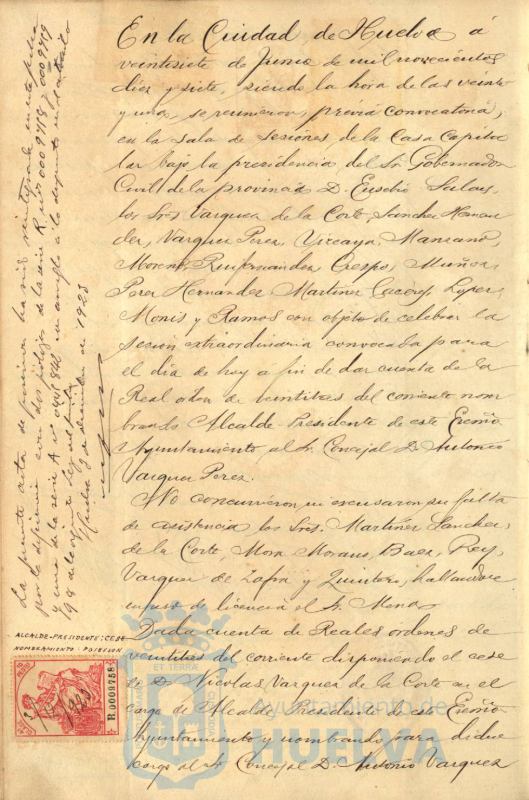 En la Ciudad de Huelva á
veintisiete de Junio de mil novecientos
diez y siete, siendo la hora de las veinte
y una, se reunieron, previa convocatoria,
en la sala de sesiones, de la Casa Capitu
lar bajo la presidencia del Sr. Gobernador
Civil de la provincia D. Eusebio Salas,
los Sres Vazquez de la Corte, Sanchez Hernan
dez, Vazquez Perez, Vizcaya, Manzano,
Moreno, Ruifernandez, Crespo, Muñoz,
Perez Hernandez, Martinez Lopez,
Monis y Ramos con objeto de celebrar la
sesion extraordinaria convocada para
el dia de hoy a fin de dar cuenta de la
Real orden de veintitres del corriente nom
brando Alcalde-Presidente de este Excmo
Ayuntamiento al Sr. Concejal D. Antonio
Vazquez Perez.
No concurrieron ni excusaron su falta
de asistencia los Sres. Martinez Sanchez,
de la Corte, Mora Baez, Rey,
Vazquez de Zafra y Quintero, hallandose
en uso de licencia el Sr. Mena.
Dada cuenta de Reales ordenes de
veintitres del corriente disponiendo el cese
de D. Nicolas Vazquez de la Corte en el
cargo de Alcalde Presidente de este Excmo
Ayuntamiento y nombrando para dicho
cargo al Sr. Concejal D. Antonio Vazquez
La presente acta de
por la diferencia con dos pliegos de la serie R. nº 0009718 y 0009719
y uno de la serie A nº
Huelva 3 de 1923
ALCALDE-PRESIDENTE: CESE
NOMBRAMIENTO: POSESION
R.0000758
1923
Ayuntamiento de
HUELVA